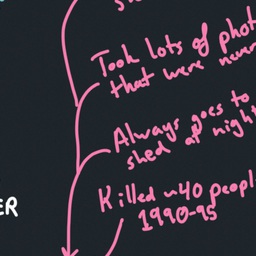 Took lots of phot
that were never
Always goes to
shed at night
Killed ~40 peopl
1990-95
ER